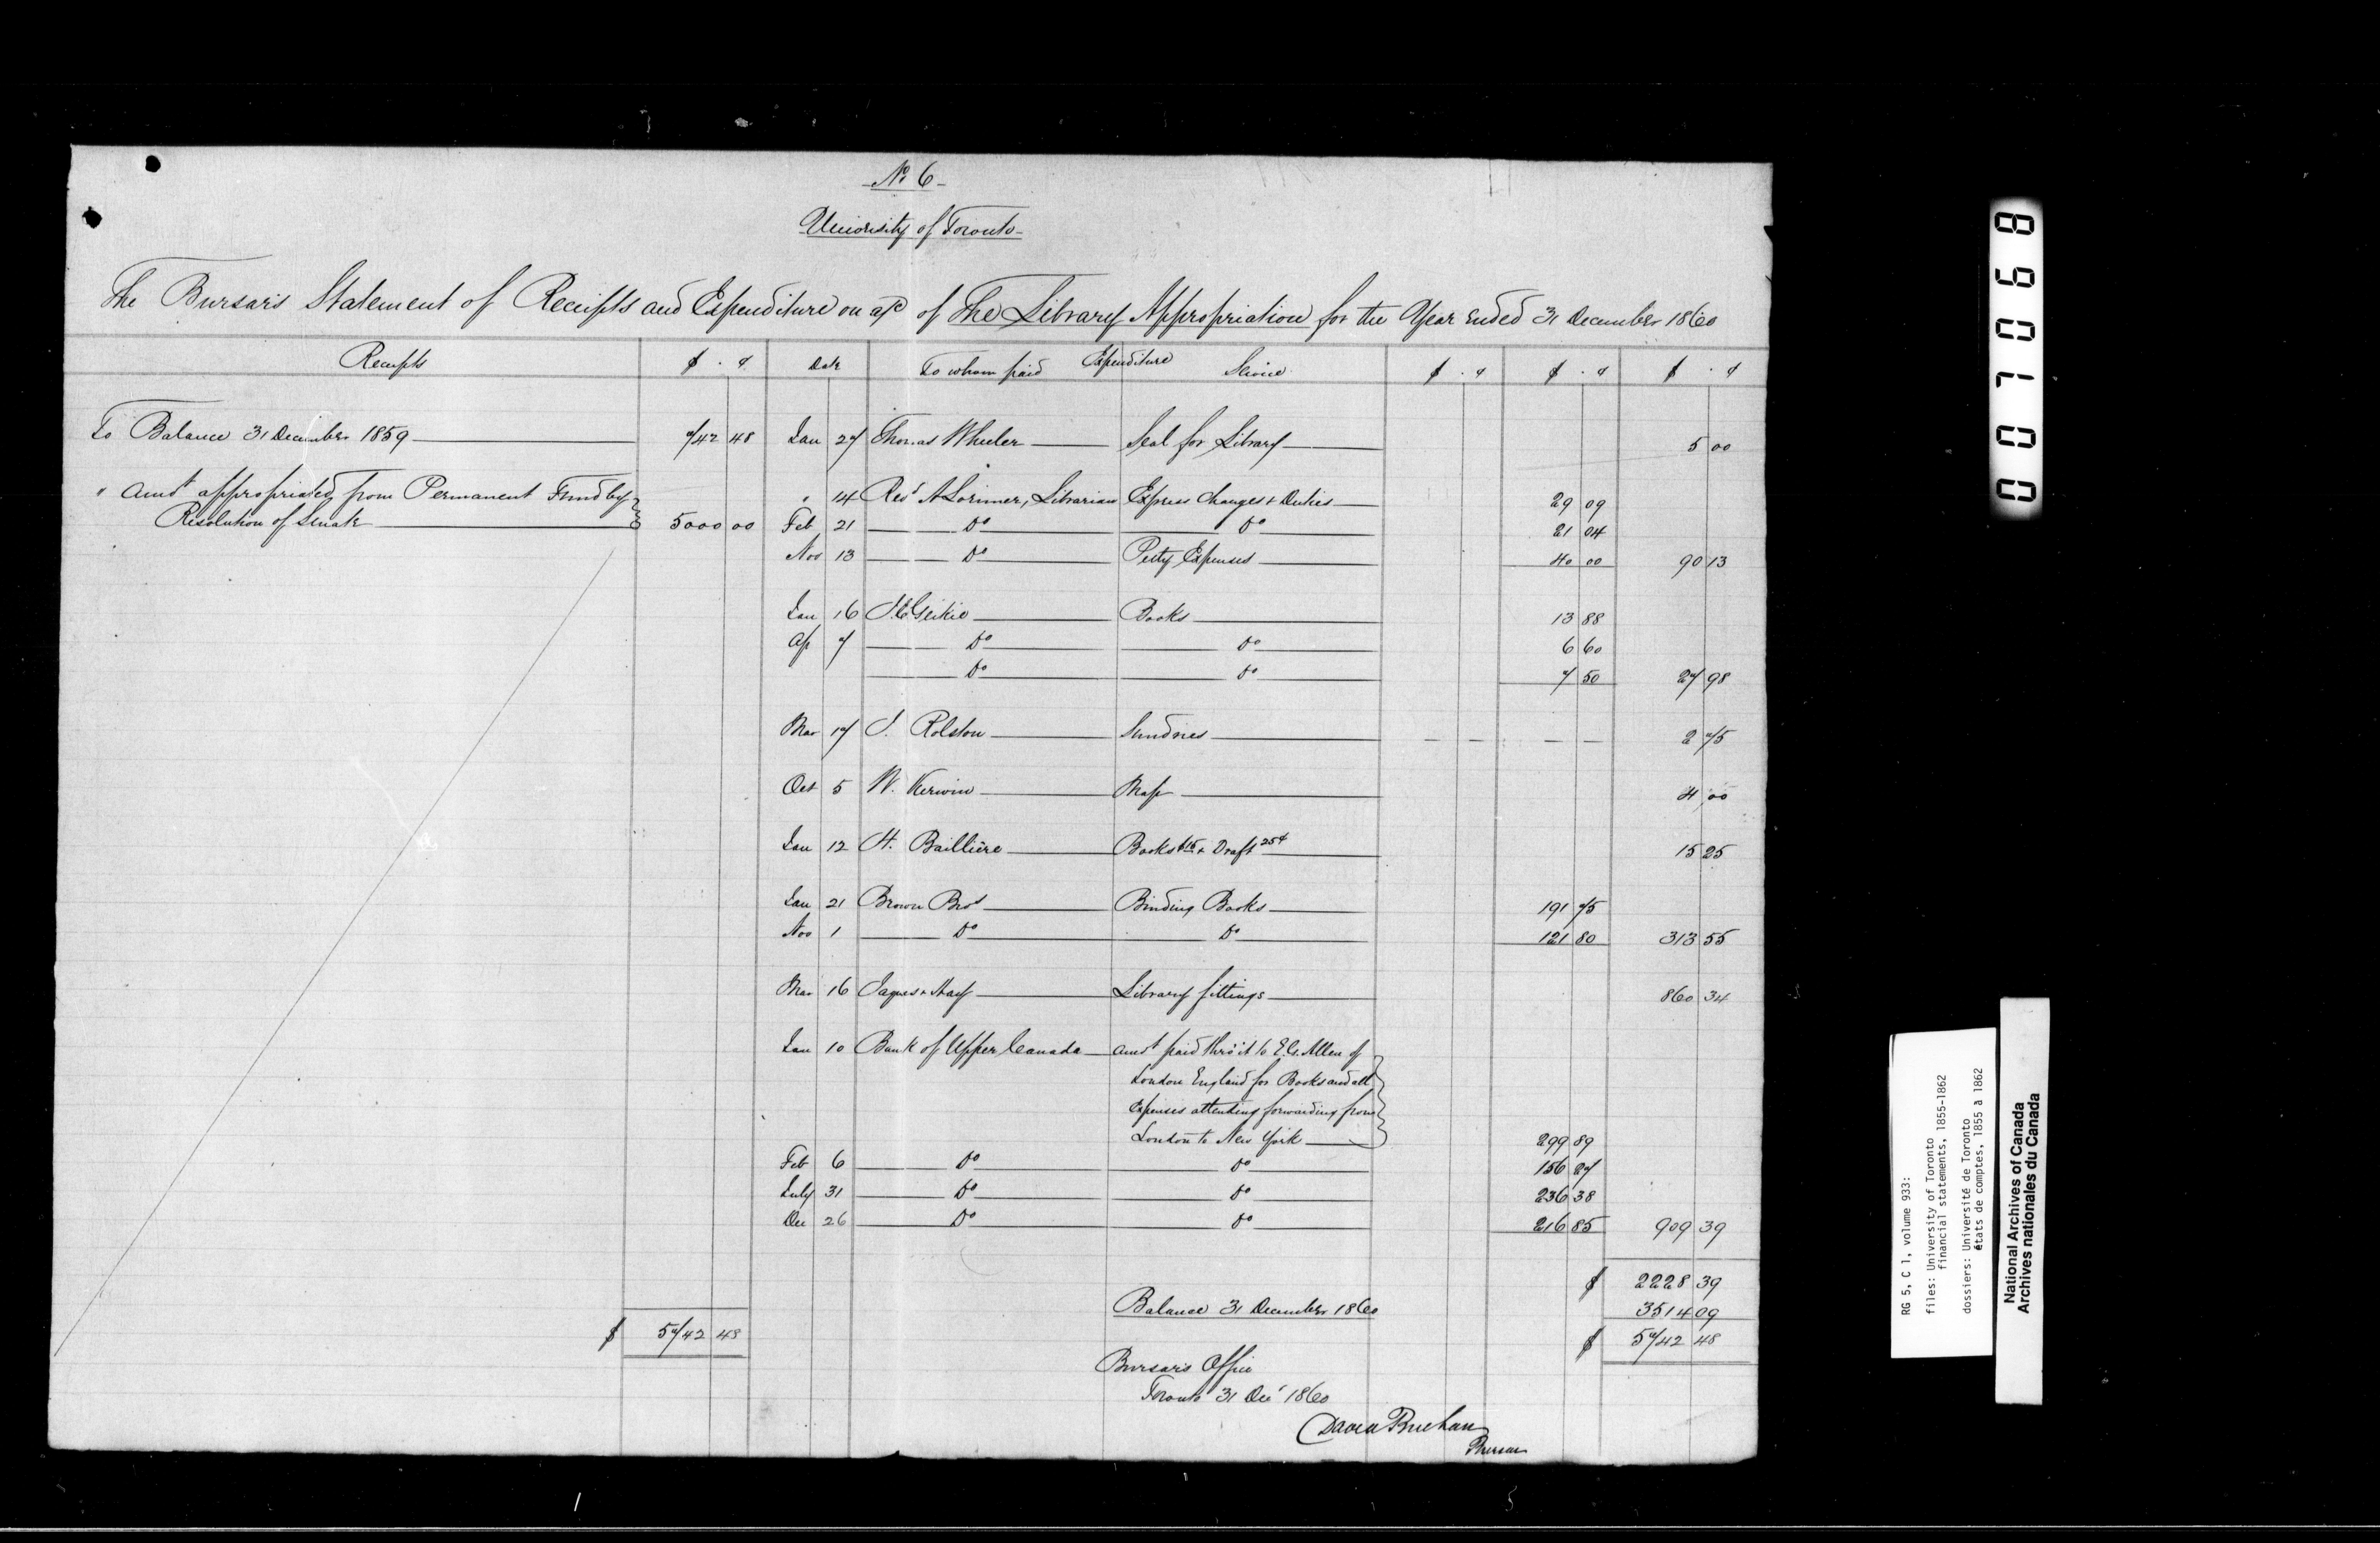 No 6
University of Toronto
The Bursar's Statement of Receipts and Expenditure on a/c of The Library Appropriation for the Year ended 31 December 1860
Receipts $ . ¢ Date To whom paid Expenditure Service $ . ¢ $ . ¢ $ . ¢
To Balance 31 December 1859 742 48 Jan 27 Thomas Wheeler Seal for Library 5 00
" Amt appropriated from Permanent Fund by " 14 Revd A Lorimer, Librarian Express Charges & Duties 29 09
Resolution of Senate 5000 00 Feb 21 Do Do 21 04
Nov 13 Do Petty Expenses 40 00 90 13
Jan 16 J.C. Geikie Books 13 88
Ap 7 Do Do 6 60
Do Do 7 50 27 98
Mar 17 J. Rolston Sundries 2 75
Oct 5 W. Kerwin Map 4 00
Jan 12 H. Baillière Books $15 & Draft 25¢ 15 25
Jan 21 Brown Bros Binding Books 191 75
Nov 1 Do Do 121 80 313 55
Mar 16 Jaques & Hay Library fittings 860 34
Jan 10 Bank of Upper Canada Amt paid thro' it to E.G. Allen of
London England for Books and all
Expenses attending forwarding from
London to New York 299 89
Feb 6 Do Do 156 27
July 31 Do Do 236 38
Dec 26 Do Do 216 85 909 39
$ 2228 39
Balance 31 December 1860 3514 09
$ 5742 48 $ 5742 48
Bursar's Office
Toronto 31 Dec 1860
David Buchan
Bursar
0 0 7 0 6 8
RG 5, C 1, volume 933:
files: University of Toronto
financial statements, 1855-1862
dossiers: Université de Toronto
états de comptes, 1855 à 1862
National Archives of Canada
Archives nationales du Canada